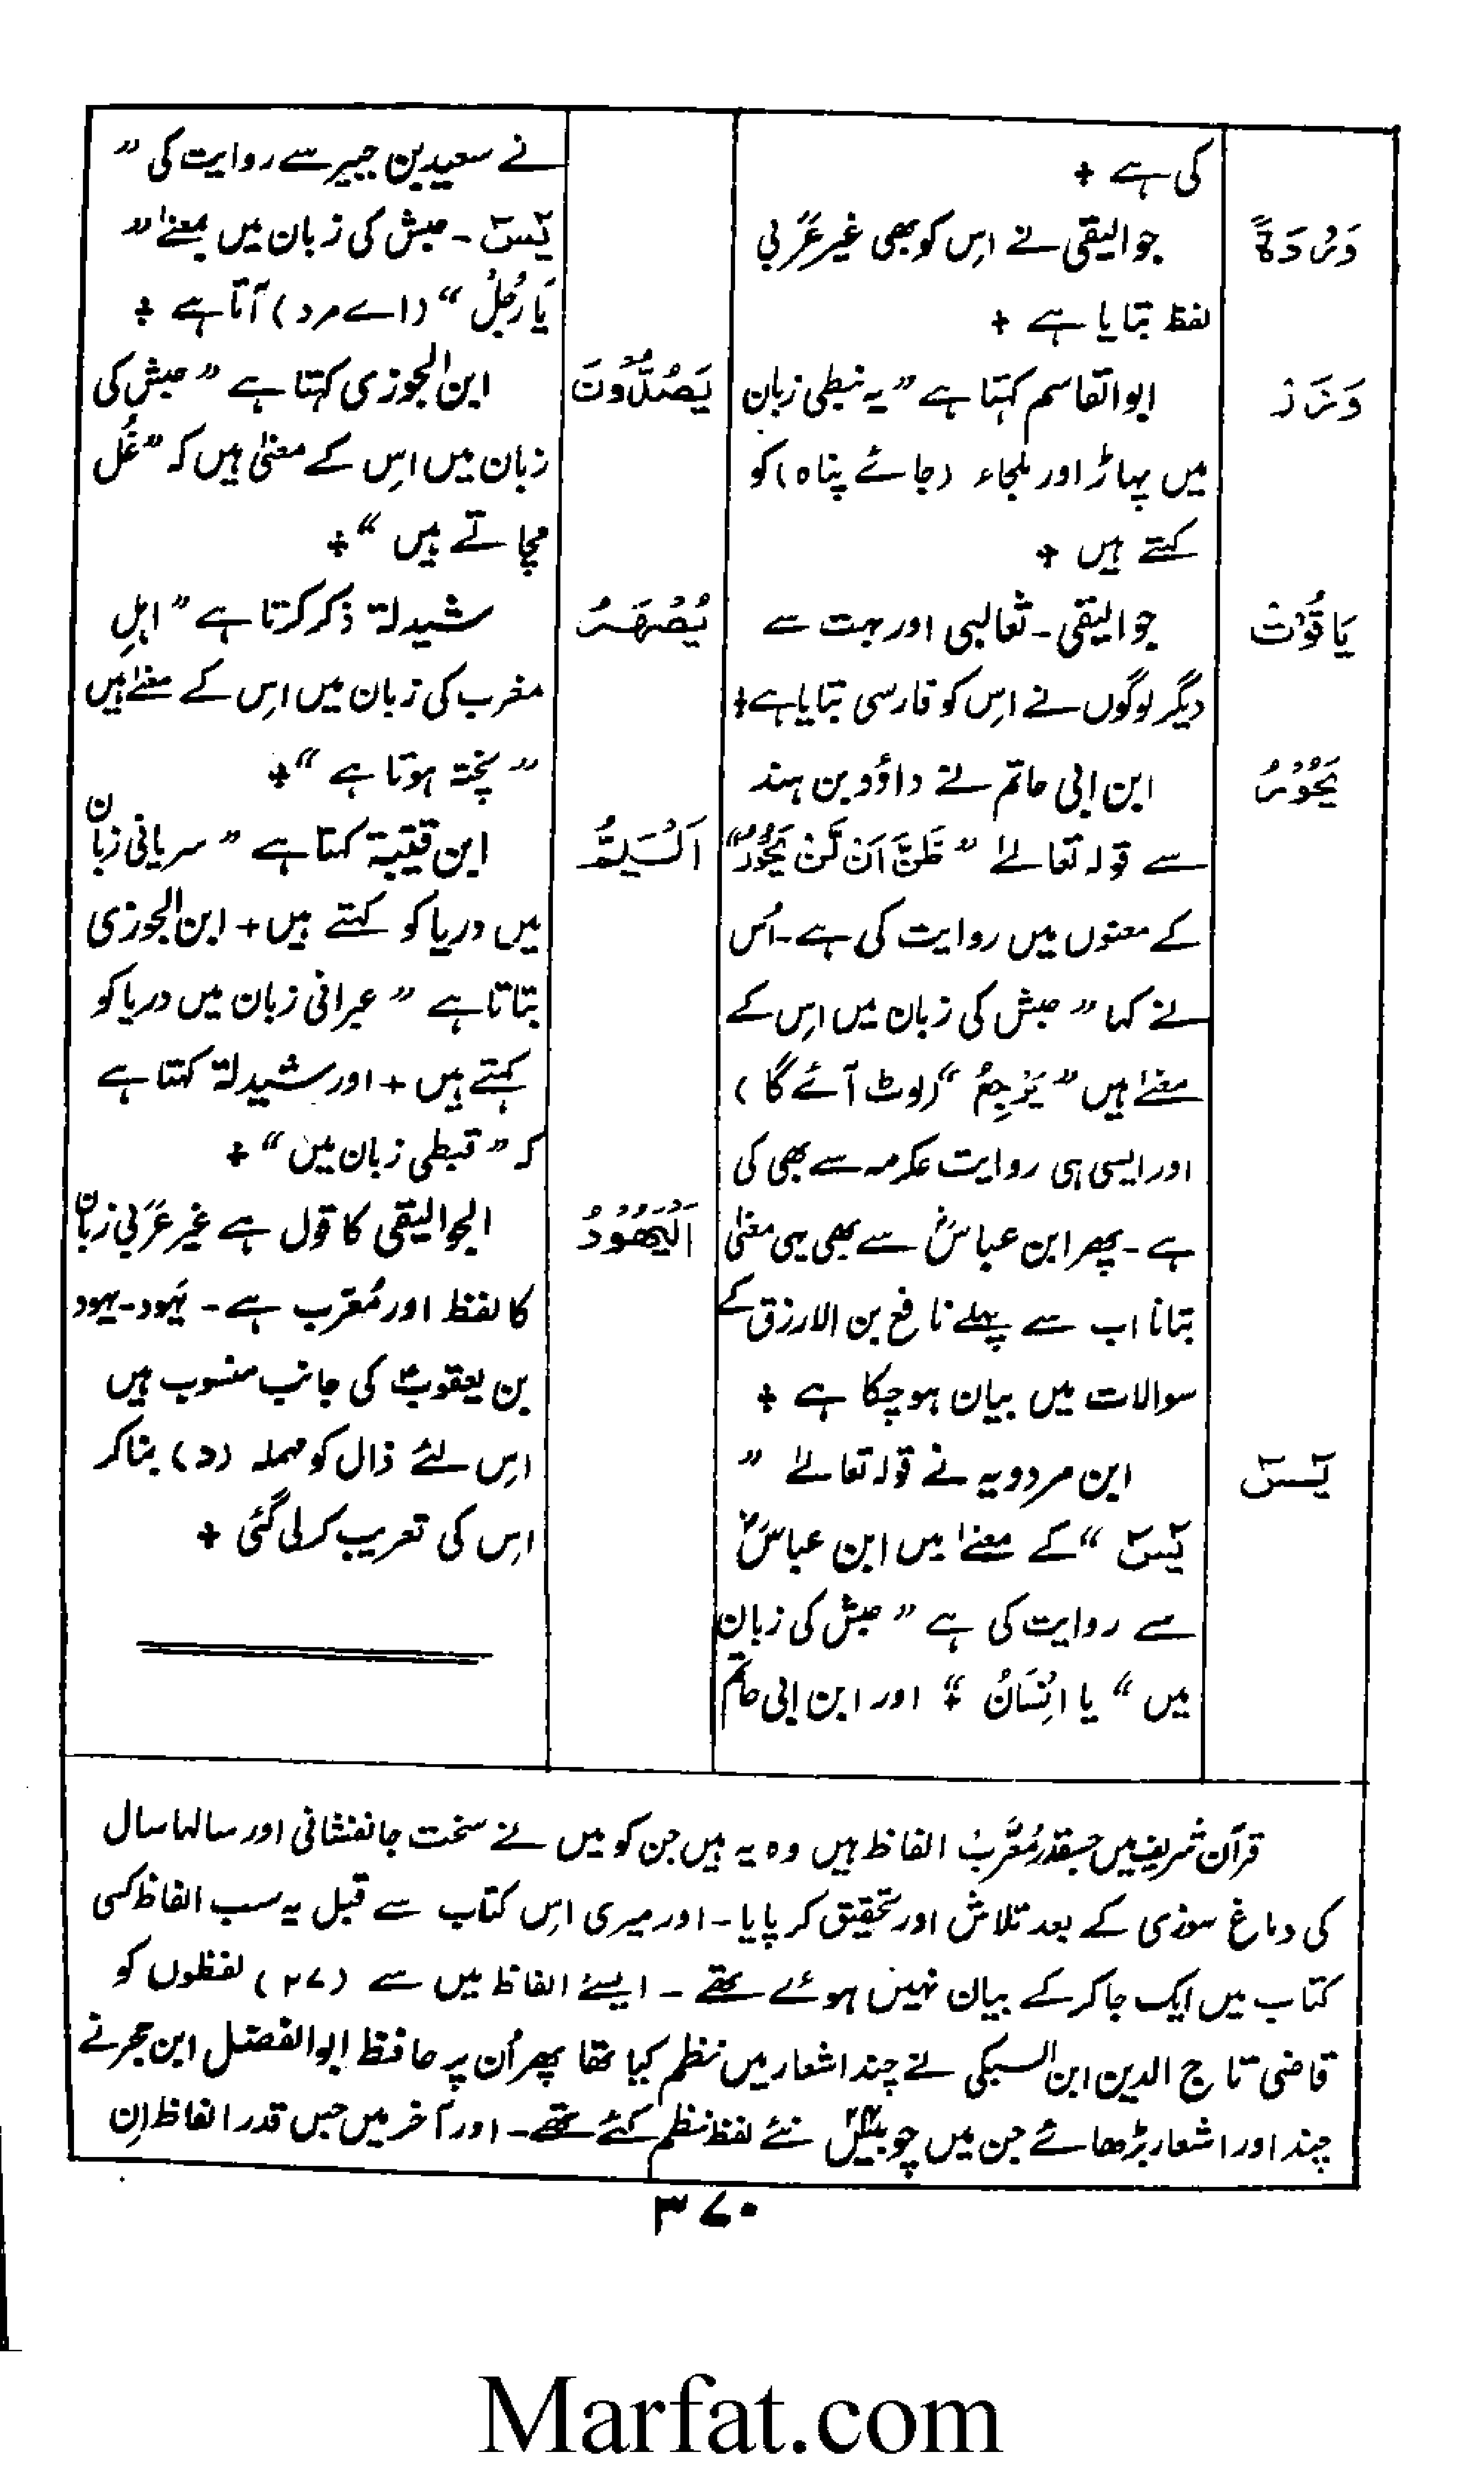 کی ہے +
وَرْدَۃً
جوالیقی نے اِس کو بھی غیر عَرَبی
لفظ بتایا ہے +
وَزَرَ
ابوالقاسم کہتا ہے ”یہ نبطی زبان
میں پہاڑ اور ملجاء (جائے پناہ) کو
کہتے ہیں +
یَاقُوْتُ
جوالیقی۔ ثعالبی اور بہت سے
دیگر لوگوں نے اِس کو فارسی بتایا ہے +
یَحُوْرُ
ابن ابی حاتم نے داؤد بن ہند
سے قولہ تعالےٰ ”ظَنَّ اَن لَّنْ یَّحُوْرَ“
کے معنوں میں روایت کی ہے۔ اُس
نے کہا ”حبش کی زبان میں اِس کے
معنےٰ ہیں ”یَرْجِعُ“ (لوٹ آئے گا)
اور ایسی ہی روایت عکرمہ سے بھی کی
ہے۔ پھر ابن عباسؓ سے بھی یہی معنیٰ
بتانا اب سے پہلے نافع بن الارزق کے
سوالات میں بیان ہو چکا ہے +
یٰسٓ
ابن مردویہ نے قولہ تعالےٰ ”
یٰسٓ“ کے معنےٰ میں ابن عباسؓ
سے روایت کی ہے ”حبش کی زبان
میں“ یا اِنْسَانُ“ + اور ابن ابی حاتم
نے سعید بن جبیر سے روایت کی ”
یٰسٓ۔ حبش کی زبان میں بمعنےٰ ”
یَا رَجُلُ“ (اے مرد) آتا ہے +
یَصُدُّوْنَ
ابن الجوزی کہتا ہے ”حبش کی
زبان میں اِس کے معنیٰ ہیں کہ ”غُل
مچاتے ہیں“ +
یُصْهَرُ
شیدلۃ ذکر کرتا ہے ”اہلِ
مغرب کی زبان میں اِس کے معنےٰ ہیں
”پختہ ہوتا ہے“ +
اَلْیَمُّ
ابن قتیبۃ کہتا ہے ”سریانی زبان
میں دریا کو کہتے ہیں + ابن الجوزی
بتاتا ہے ”عبرانی زبان میں دریا کو
کہتے ہیں + اور شیدلۃ کہتا ہے
کہ ”قبطی زبان میں“ +
اَلْیَهُوْدُ
الجوالیقی کا قول ہے غیر عَرَبی زبان
کا لفظ اور مُعَرَّب ہے۔ یَہود۔ یہود
بن یعقوبؑ کی جانب منسوب ہیں
اِس لئے ذال کو مہملہ (د) بنا کر
اِس کی تعریب کر لی گئی +
قرآن شریف میں جسقدر مُعَرَّبُ الفاظ ہیں وہ یہ ہیں جن کو میں نے سخت جانفشانی اور سالہا سال
کی دماغ سوزی کے بعد تلاش اور تحقیق کر پایا۔ اور میری اِس کتاب سے قبل یہ سب الفاظ کسی
کتاب میں ایک جا کر کے بیان نہیں ہوئے تھے۔ ایسے الفاظ میں سے (۲۷) لفظوں کو
قاضی تاج الدین ابن السبکی نے چند اشعار میں نظم کیا تھا پھر اُن پر حافظ ابوالفضل ابن حجر نے
چند اور اشعار بڑھائے جن میں چوبیس نئے لفظ نظم کئے تھے۔ اور آخر میں جس قدر الفاظ اِن
۳۷۰
Marfat.com